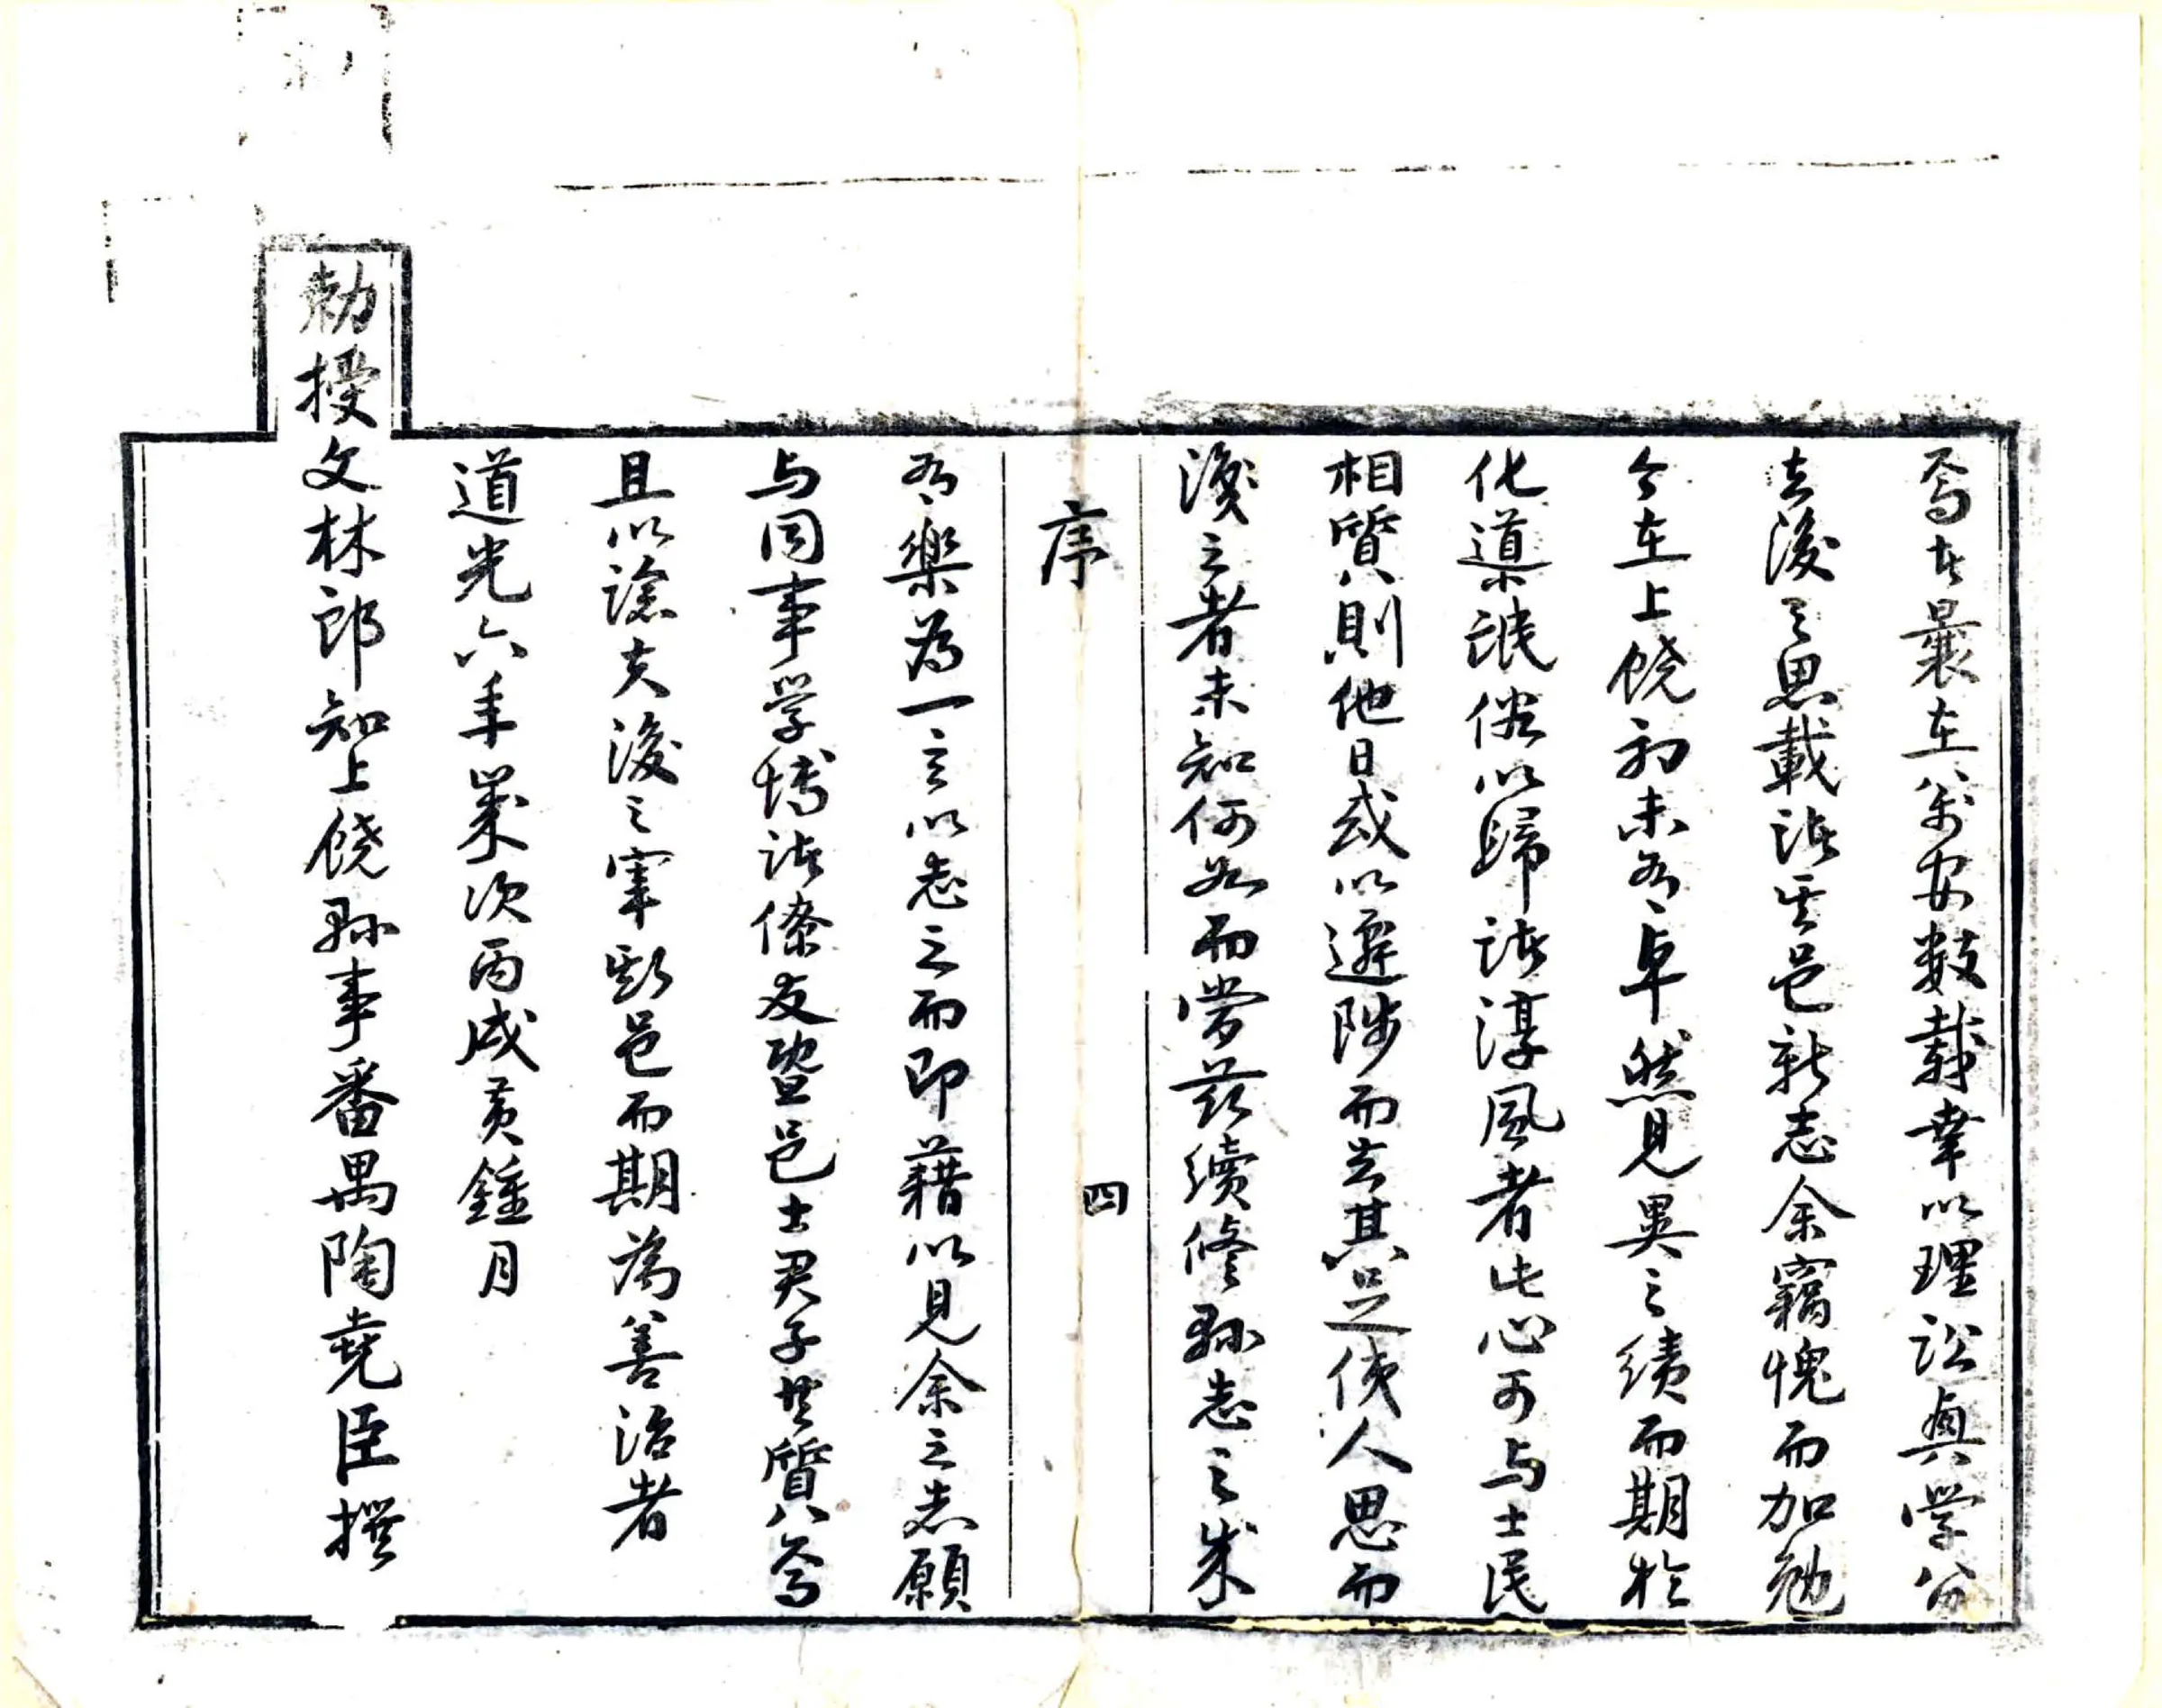 焉曩在萬安數載幸以理訟興学
去後之思載諸其邑新志余竊愧而加勉
今在上饒初未有卓然見異之績而期於
化導氓俗以歸諸淳風者此心可与士民
相質則他日或以遷陟而去其足使人思而
後之者未知何如而當茲續修縣志之成
序
四
有樂為一言以志之而即藉以見余之志願
与同事学博諸僚友暨邑士君子共質焉
且以諗夫後之宰斯邑而期為善治者
道光六年歲次丙戌黃鍾月
勅授文林郎知上饒縣事番禺陶堯臣撰